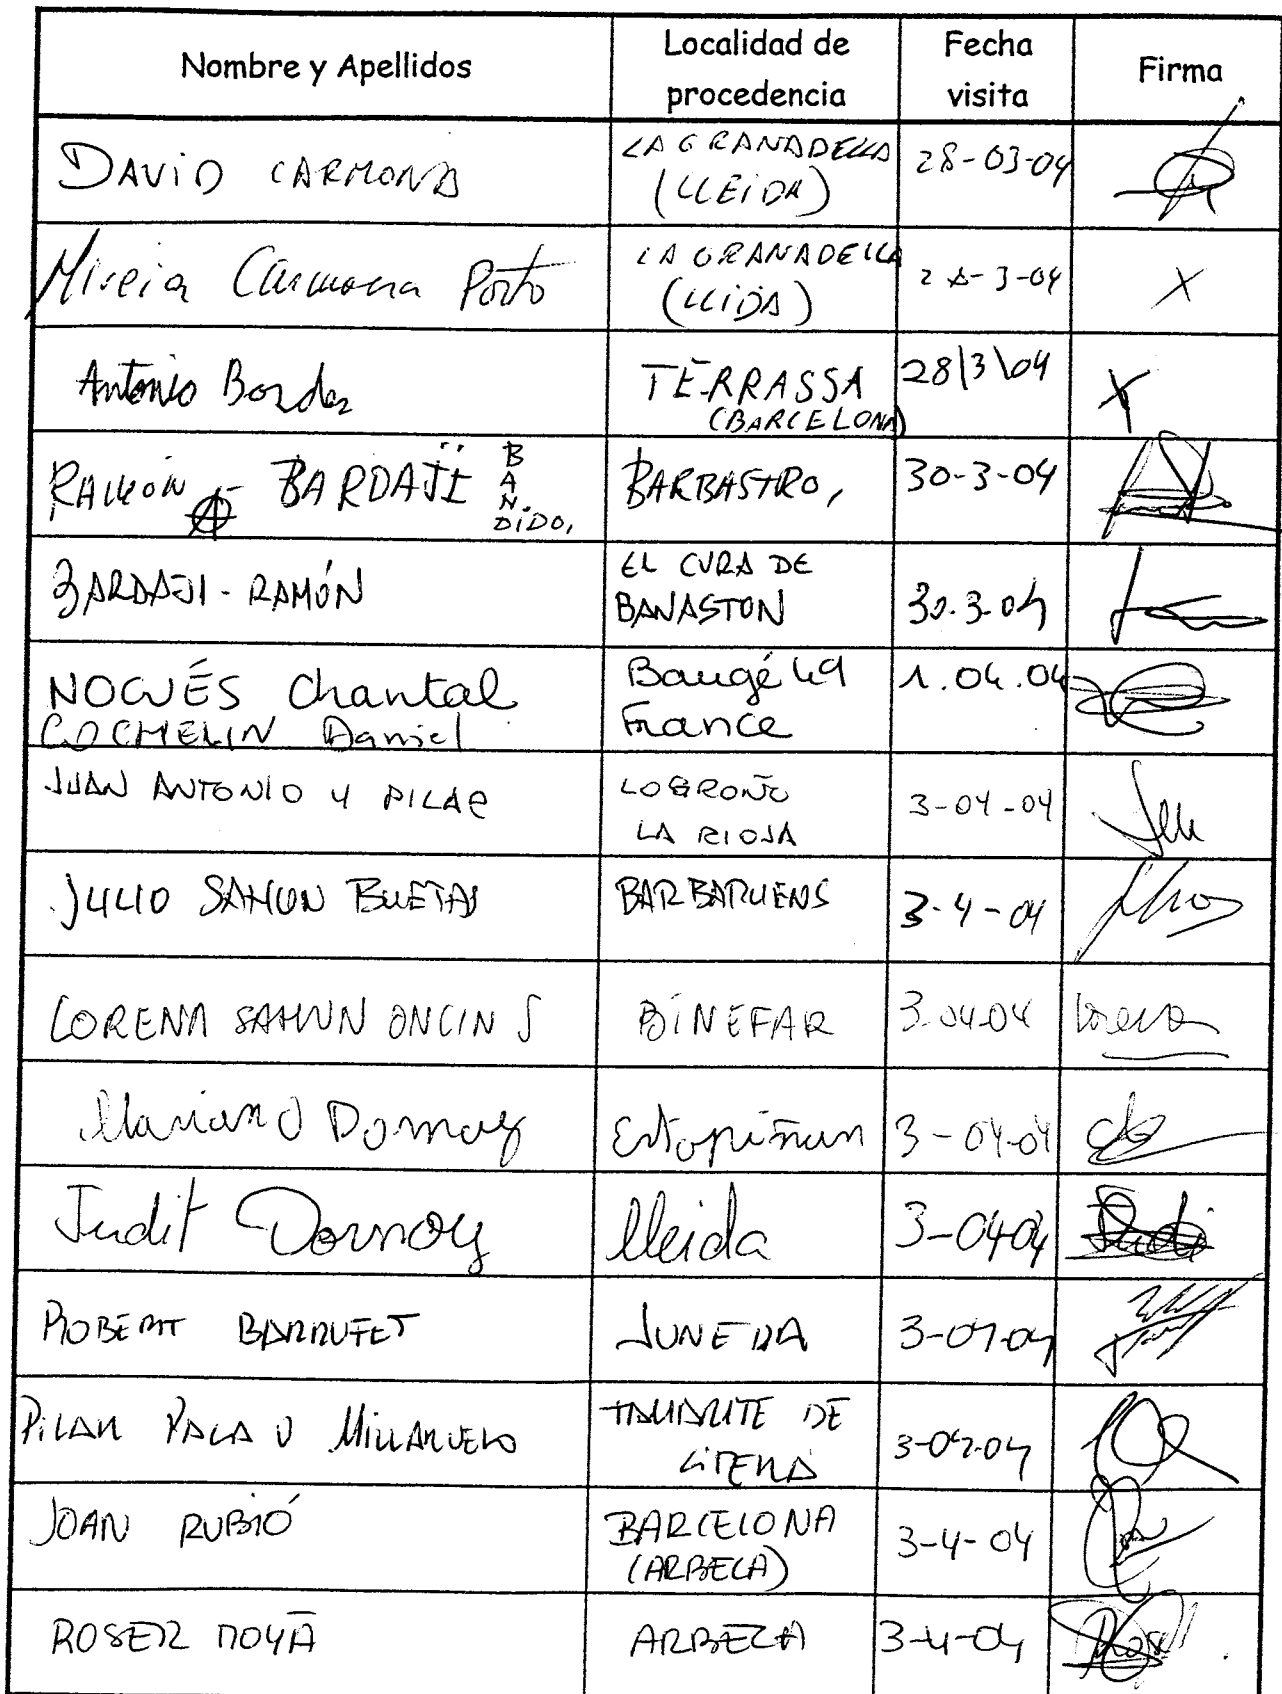 Nombre y Apellidos Localidad de procedencia Fecha visita Firma
DAVID CARMONA LA GRANADELLA (LLEIDA) 28-03-04
Mireia Carmona Porto LA GRANADELLA (LLIDA) 28-3-04 X
Antonio Borda TERRASSA (BARCELONA) 28/3\04 X
RAMÓN BARDAJÍ BANDIDO, BARBASTRO, 30-3-04
BARDAJI - RAMÓN EL CURA DE BANASTON 30.3.04
NOGUÉS Chantal Baugé 49 1.04.04
COCHELIN Daniel France
JUAN ANTONIO Y PILAR LOGROÑO LA RIOJA 3-04-04
JULIO SAHUN BUETAS BARBARUENS 3-4-04
LORENA SAHUN ONCINS BINEFAR 3-04-04 Lorena
Mariano Domoy Estopiñan 3-04-04
Judit Domoy lleida 3-04-04 Judit
ROBERT BARRUFET JUNEDA 3-04-04
PILAR PALAU MILLARUELO TAMARITE DE LITERA 3-04-04
JOAN RUBIÓ BARCELONA (ARBECA) 3-4-04
ROSER MOYÀ ARBECA 3-4-04 Roser